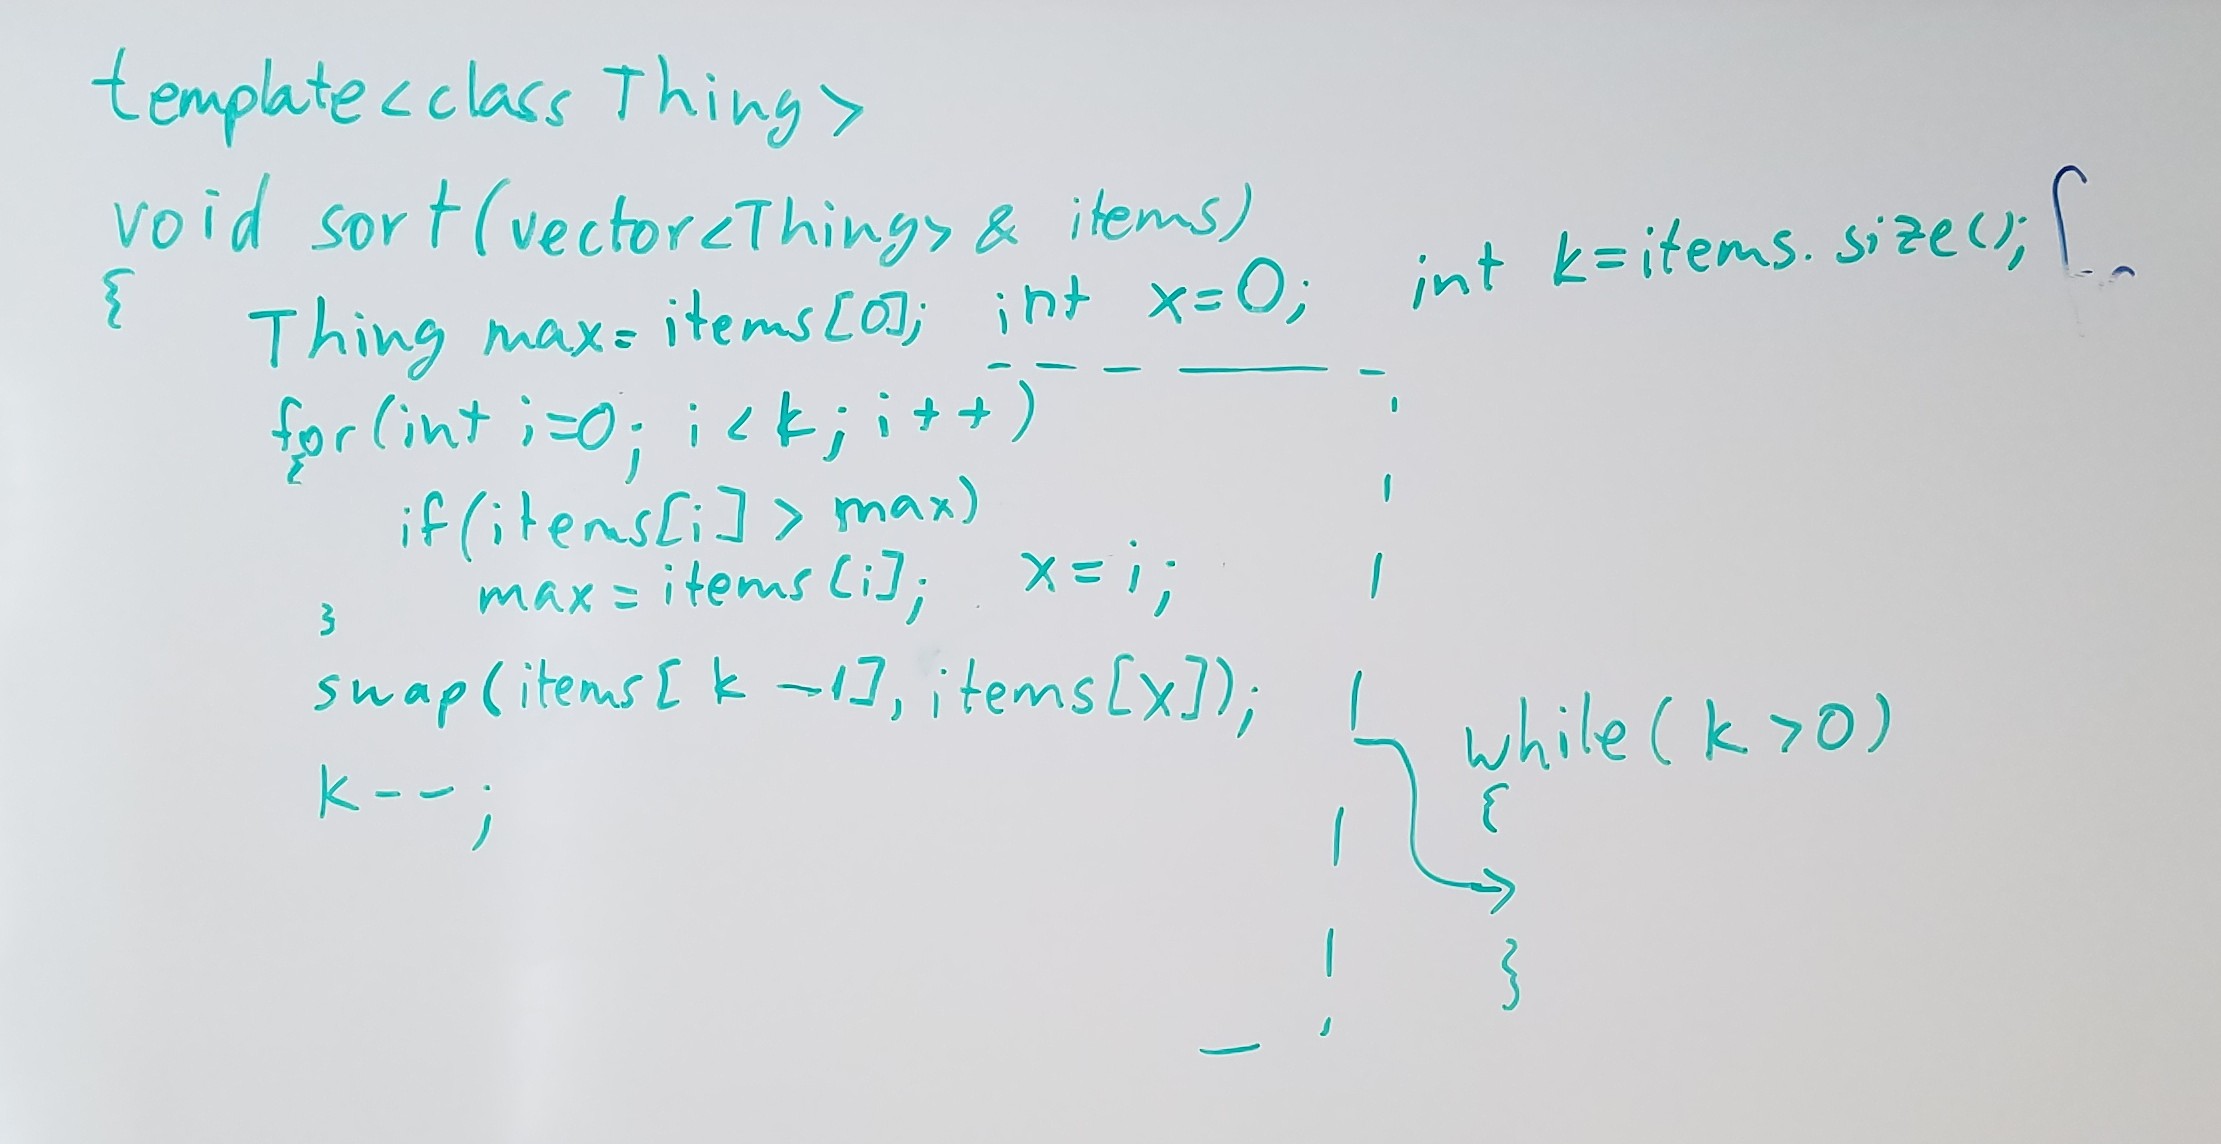 template<class Thing>
void sort(vector<Thing> & items)
{
Thing max=items[0]; int x=0; int k=items.size();
for(int i=0; i<k; i++)
{
if(items[i]>max)
max=items[i]; x=i;
}
swap(items[k-1], items[x]);
k--;
while(k>0)
{
}